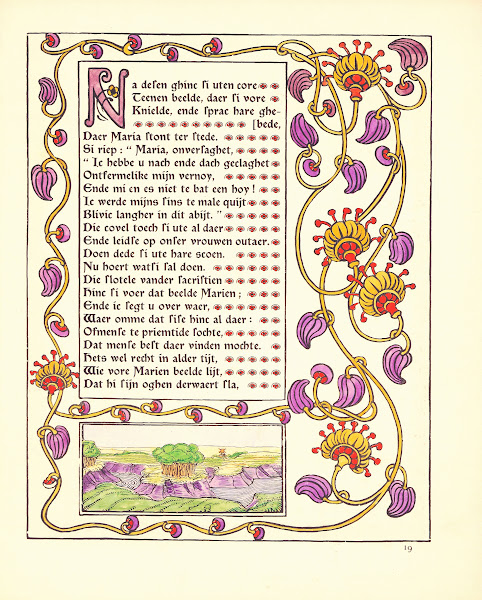 Na desen ghinc si uten core
Teenen beelde, daer si vore
Knielde, ende sprac hare ghe-
[bede,
Daer Maria stont ter stede.
Si riep: “ Maria, onversaghet,
“ Ic hebbe u nach ende dach geclaghet
Ontfermelike mijn vernoy,
Ende mi en es niet te bat een hoy !
Ic werde mijns sins te male quijt
Blivic langher in dit abijt. ”
Die covel toech si ute al daer
Ende leidse op onser vrouwen outaer.
Doen dede si ute hare scoen.
Nu hoert watsi sal doen.
Die slotele vander sacristien
Hinc si voer dat beelde Marien ;
Ende ic segt u over waer,
Waer omme dat sise hinc al daer :
Ofmense te priemtide sochte,
Dat mense best daer vinden mochte.
Hets wel recht in alder tijt,
Wie vore Marien beelde lijt,
Dat hi sijn oghen derwaert sla,
19